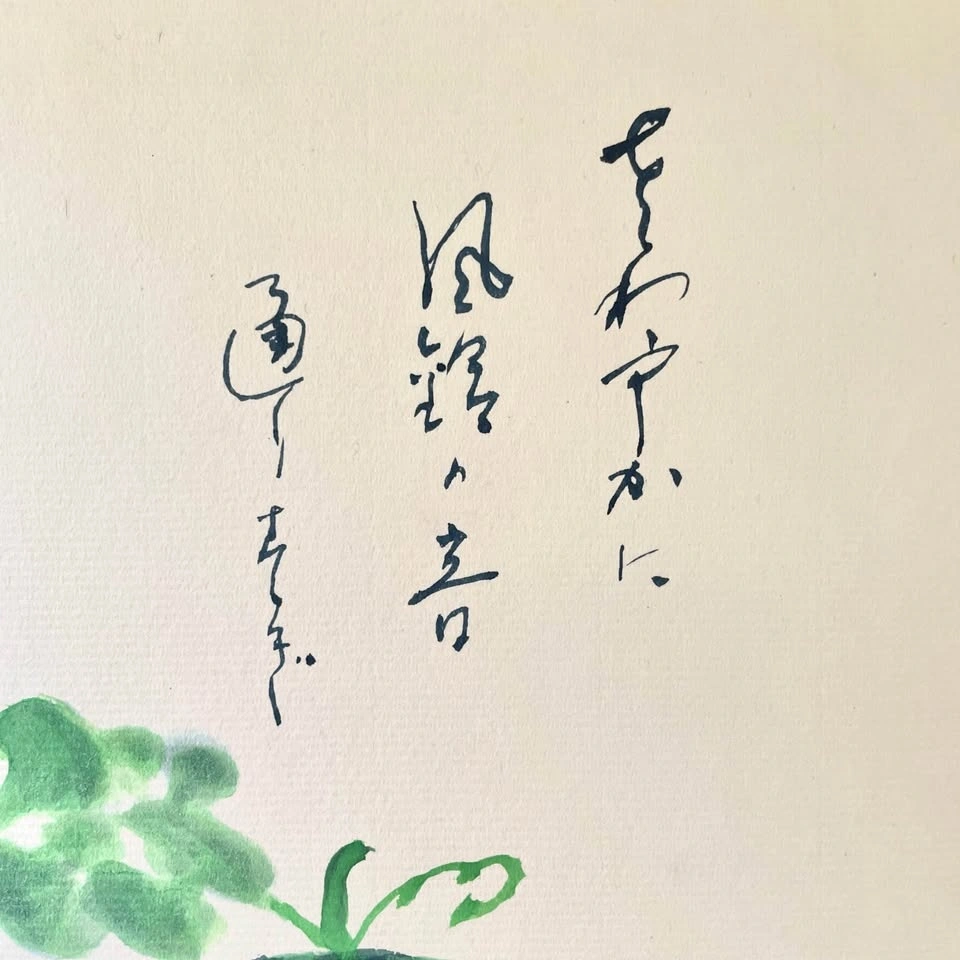 さわやかに
風鈴の音
通りすぎ